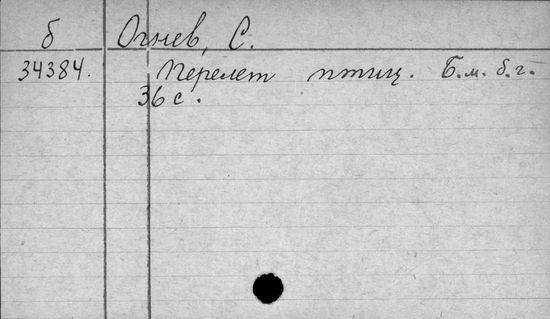 б Огнев, С.
34384. Перелет птиц. Б.м. б.г.
36 с.